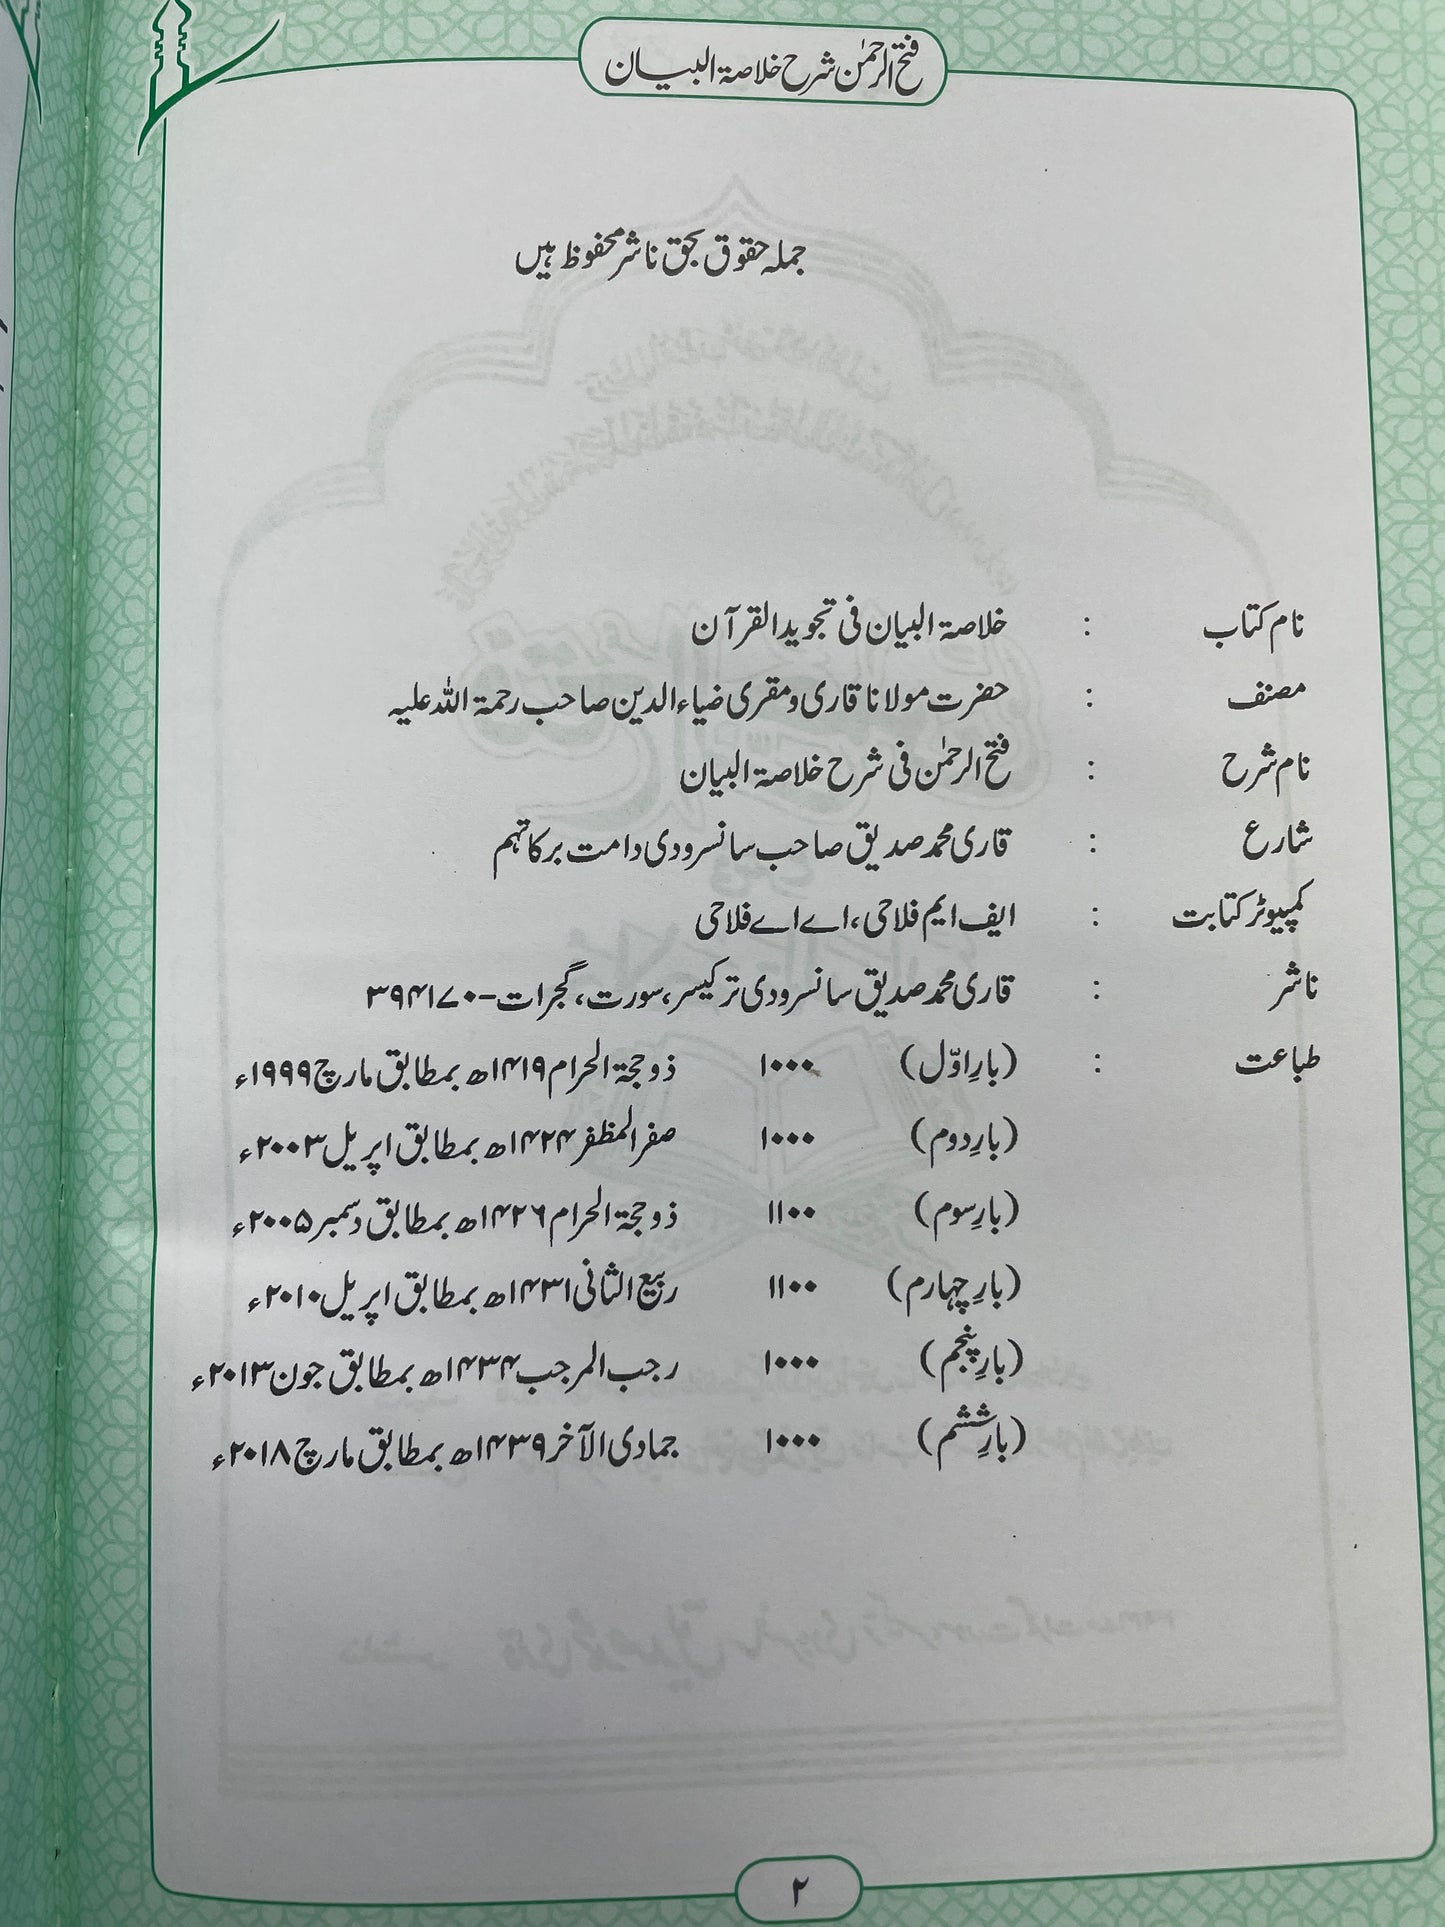 فتح الرحمٰن شرح خلاصۃ البیان
جملہ حقوق بحق ناشر محفوظ ہیں
نام کتاب : خلاصۃ البیان فی تجوید القرآن
مصنف : حضرت مولانا قاری و مقری ضیاء الدین صاحب رحمۃ اللہ علیہ
نام شرح : فتح الرحمٰن فی شرح خلاصۃ البیان
شارع : قاری محمد صدیق صاحب سانسرودی دامت برکاتہم
کمپیوٹر کتابت : ایف ایم فلاحی، اے اے فلاحی
ناشر : قاری محمد صدیق سانسرودی ترکیسر، سورت، گجرات-۳۹۴۱۷۰
طباعت : (بارِ اوّل) ۱۰۰۰ ذوجۃ الحرام ۱۴۱۹ھ بمطابق مارچ ۱۹۹۹ء
(بارِ دوم) ۱۰۰۰ صفر المظفر ۱۴۲۴ھ بمطابق اپریل ۲۰۰۳ء
(بارِ سوم) ۱۱۰۰ ذوجۃ الحرام ۱۴۲۶ھ بمطابق دسمبر ۲۰۰۵ء
(بارِ چہارم) ۱۱۰۰ ربیع الثانی ۱۴۳۱ھ بمطابق اپریل ۲۰۱۰ء
(بارِ پنجم) ۱۰۰۰ رجب المرجب ۱۴۳۴ھ بمطابق جون ۲۰۱۳ء
(بارِ ششم) ۱۰۰۰ جمادی الآخر ۱۴۳۹ھ بمطابق مارچ ۲۰۱۸ء
۲